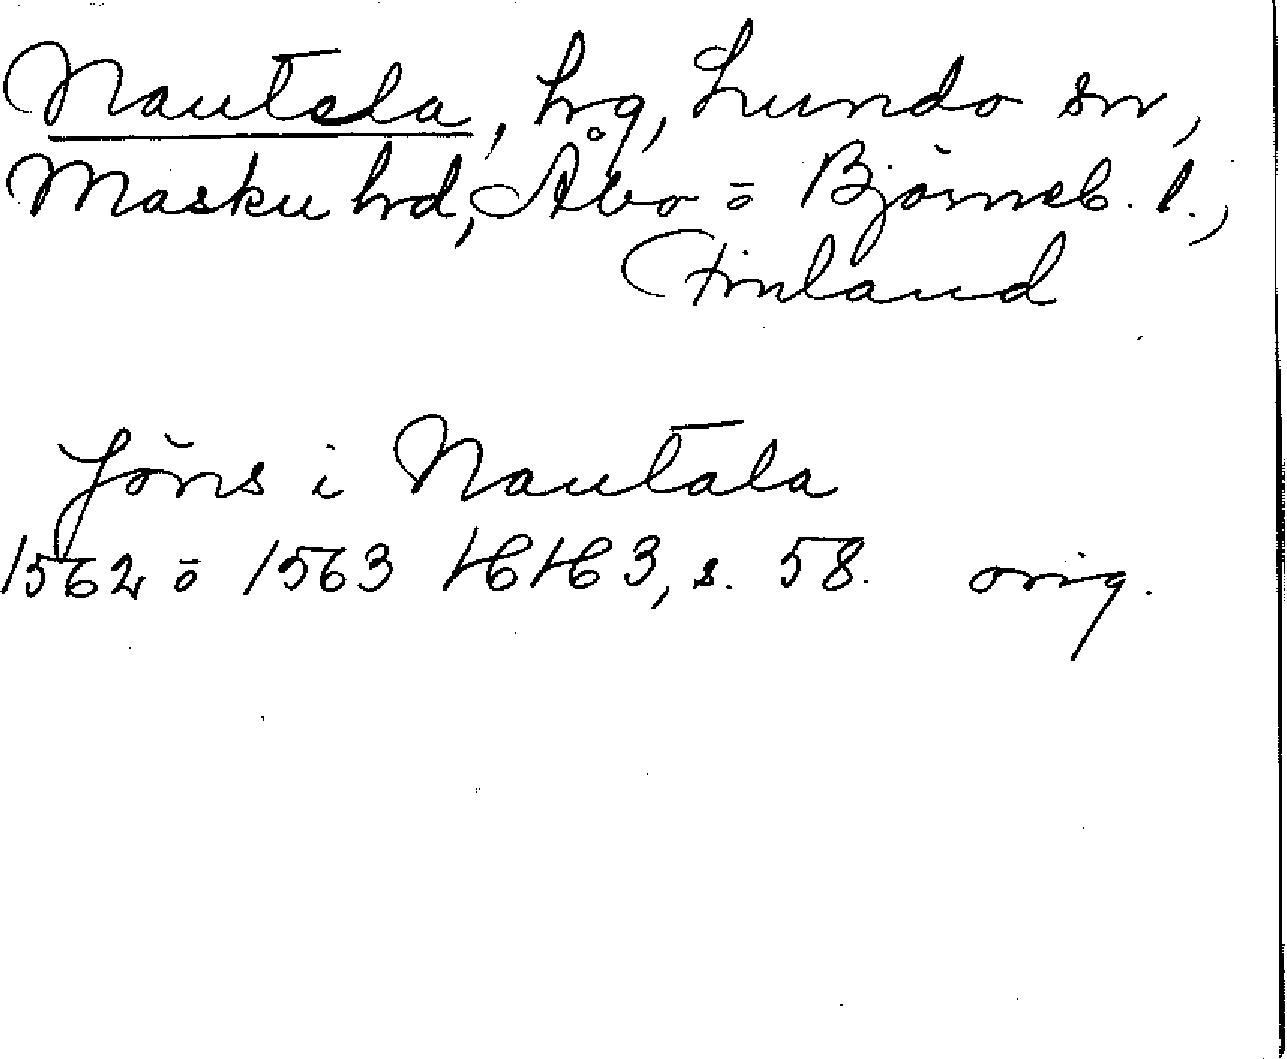 Nautela, hrg, Lundo sn,
Masku hrd, Åbo o Björneb. l.,
Finland
Jöns i Nautala
1562 o 1563 HH 3, s. 58. orig.